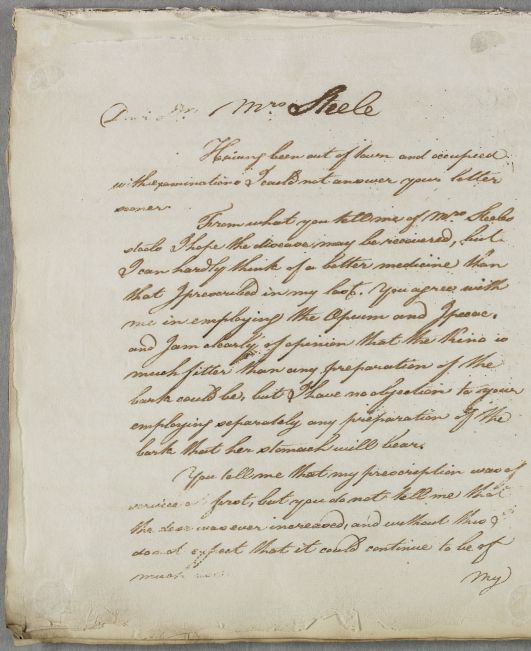 Dear Sir, Mrs. Steele
Having been out of town and occupied
with examinations I could not answer your letter
sooner.
From what you tell me of Mrs Steeles
state I hope the disease may be recovered, but
I can hardly think of a better medicine than
that I prescribed in my last. You agree with
me in employing the Opium and Ipecac.
and I am clearly of opinion that the Kino is
much fitter than any preparation of the
bark could be, but I have no objection to your
employing separately any preparation of the
bark that her stomach will bear.
You tell me that my prescription was of
service at first, but you do not tell me that
the dose was ever increased, and without this I
do not expect that it could continue to be of
much
my